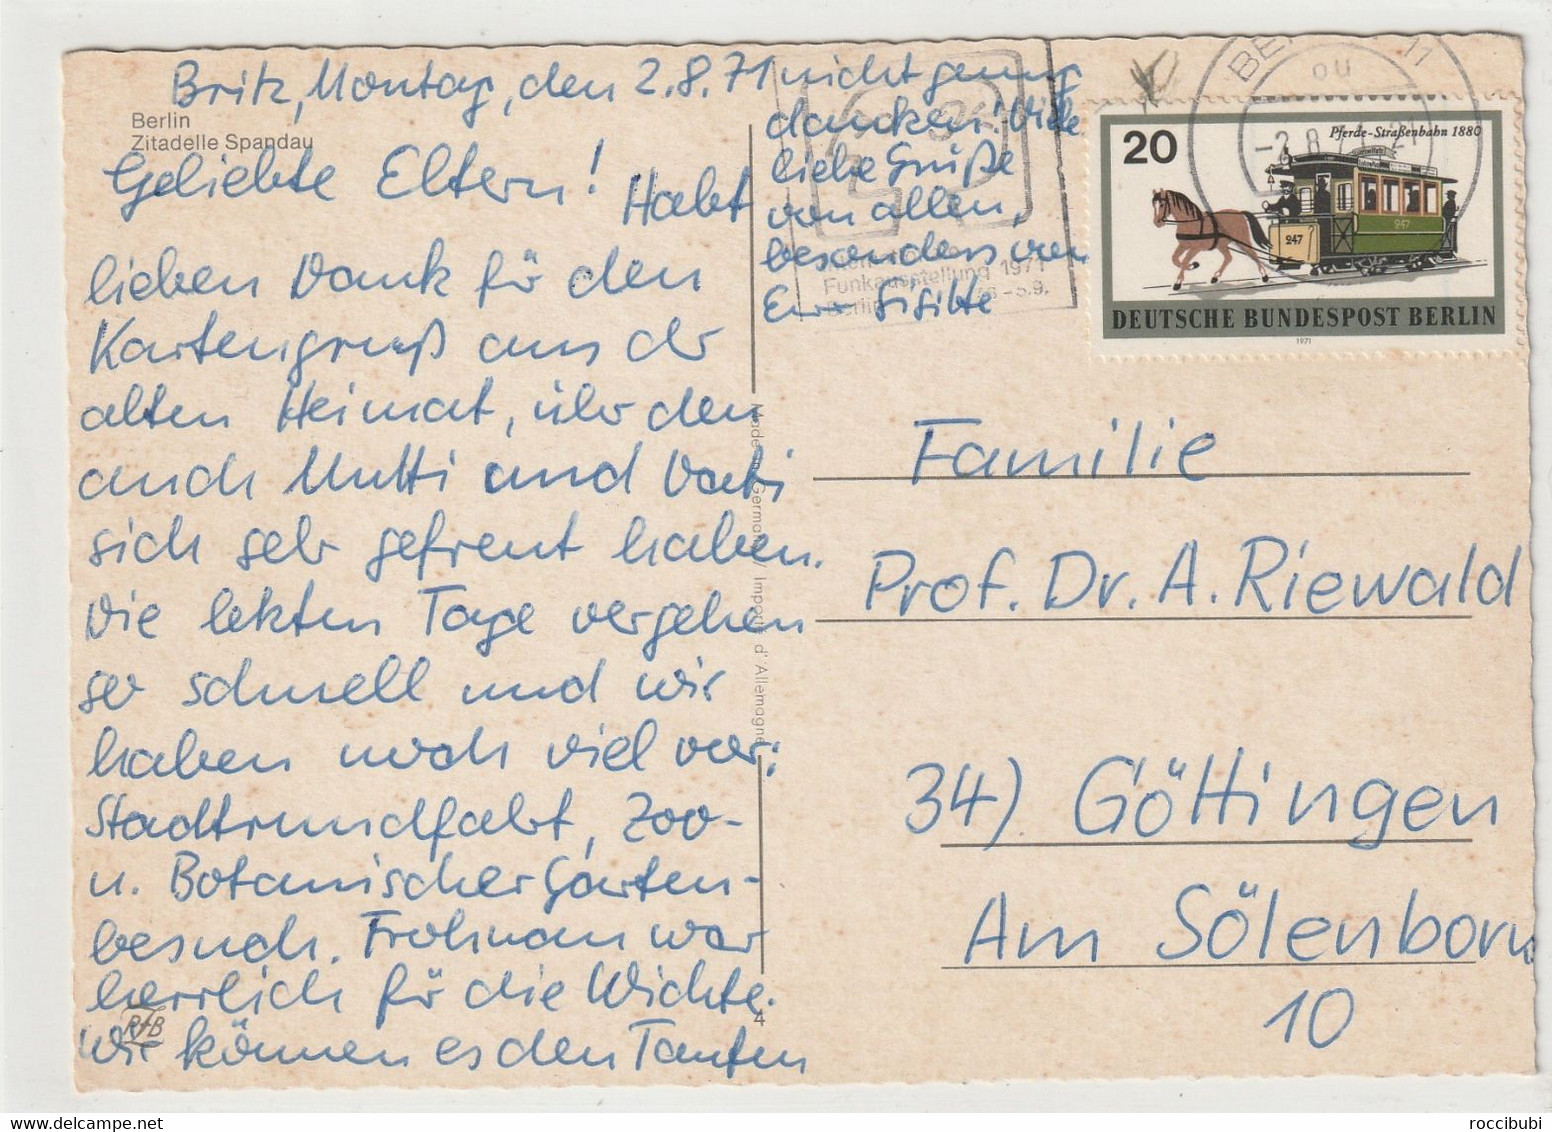 Berlin
Zitadelle Spandau
Britz, Montag, den 2.8.71
Geliebte Eltern! Habt
lieben Dank für den
Kartengruß aus der
alten Heimat, über den
auch Mutti und Vati
sich sehr gefreut haben.
Die letzten Tage vergehen
so schnell und wir
haben noch viel vor:
Stadtrundfahrt, Zoo-
u. Botanischer Garten-
besuch. Frohnau war
herrlich für die Wichte.
Wir können es den Tanten
nicht genug
danken! Viele
liebe Grüße
von allen,
besonders von
Eurer
Funkausstellung 1971
Berlin
RFB
4
Made in Germany / Importé d'Allemagne
20
Pferde-Straßenbahn 1880
247
247
DEUTSCHE BUNDESPOST BERLIN
1971
BERLIN 11
ou
-2.8.71-21
Familie
Prof. Dr. A. Riewald
34) Göttingen
Am Sölenborn
10
roccibubi